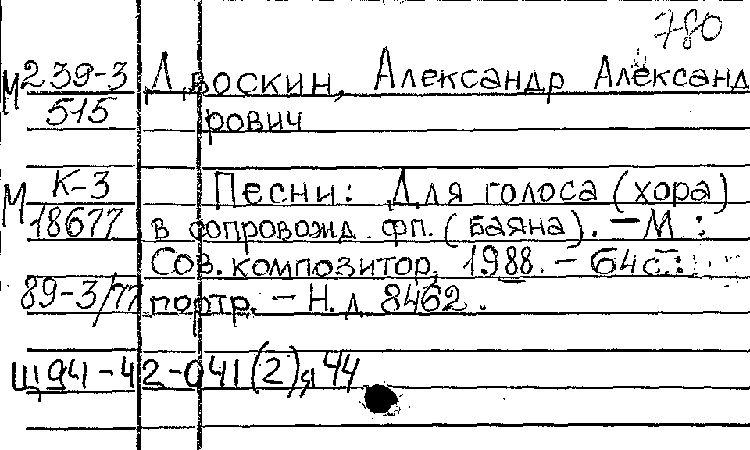 780
М 239-3 Двоскин, Александр Александ
515 рович
М К-3 Песни: Для голоса (хора)
18677 в сопровожд. фп. (баяна). – М.:
Сов. композитор, 1988. – 64 с.:
89-3/77 портр. – Н. д. 8462.
Щ941-42-041(2)я44